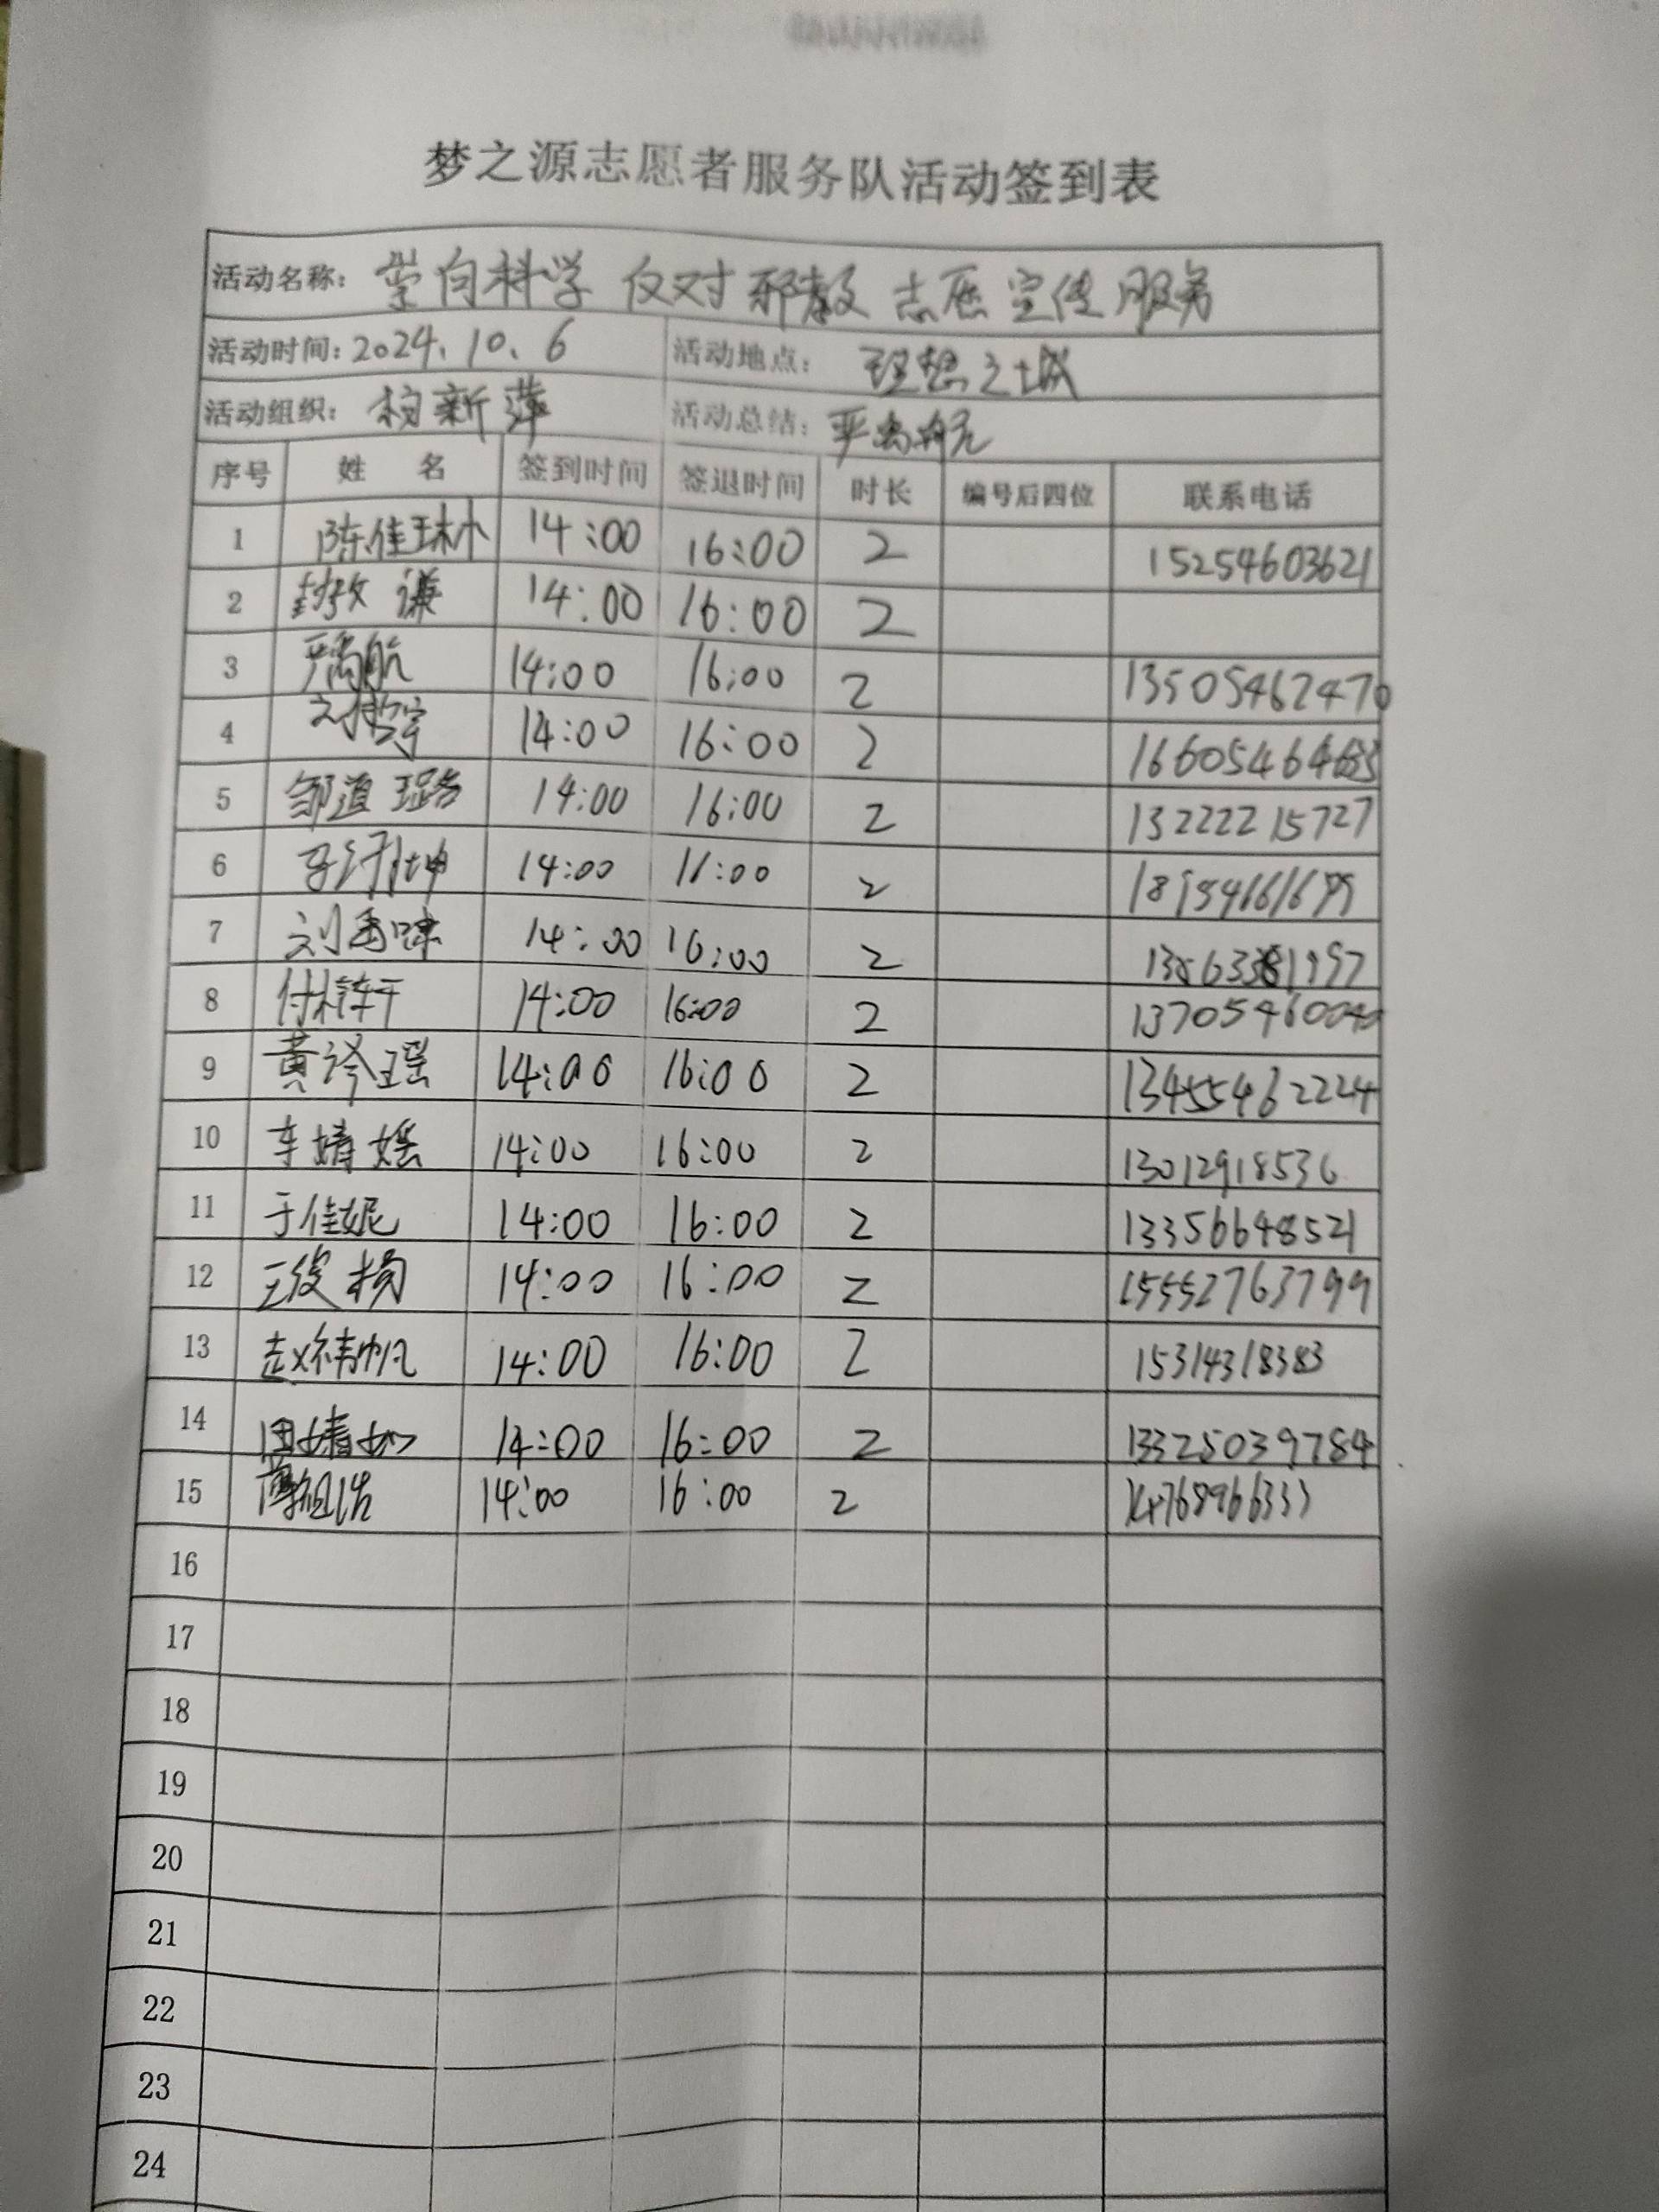 梦之源志愿者服务队活动签到表
活动名称: 学向科学 反对邪教 志愿宣传服务
活动时间: 2024、10、6 活动地点: 理想之城
活动组织: 柏新萍 活动总结: 严尚航
序号 姓 名 签到时间 签退时间 时长 编号后四位 联系电话
1 陈佳琳 14:00 16:00 2 15254603621
2 封孜谦 14:00 16:00 2
3 严尚航 14:00 16:00 2 13505462470
4 14:00 16:00 2
5 邹道璐 14:00 16:00 2 13222215727
6 14:00 2
7 刘禹 14:00 16:00 2
8 付梓轩 14:00 16:00 2
9 黄泠瑶 14:00 16:00 2 13455462224
10 车婧媱 14:00 16:00 2 13012918536
11 于佳妮 14:00 16:00 2 13356648521
12 王俊杨 14:00 16:00 2 15552763799
13 赵祎帆 14:00 16:00 2 15314318383
14 田婧如 14:00 16:00 2 13325039784
15 14:00 16:00 2
16
17
18
19
20
21
22
23
24